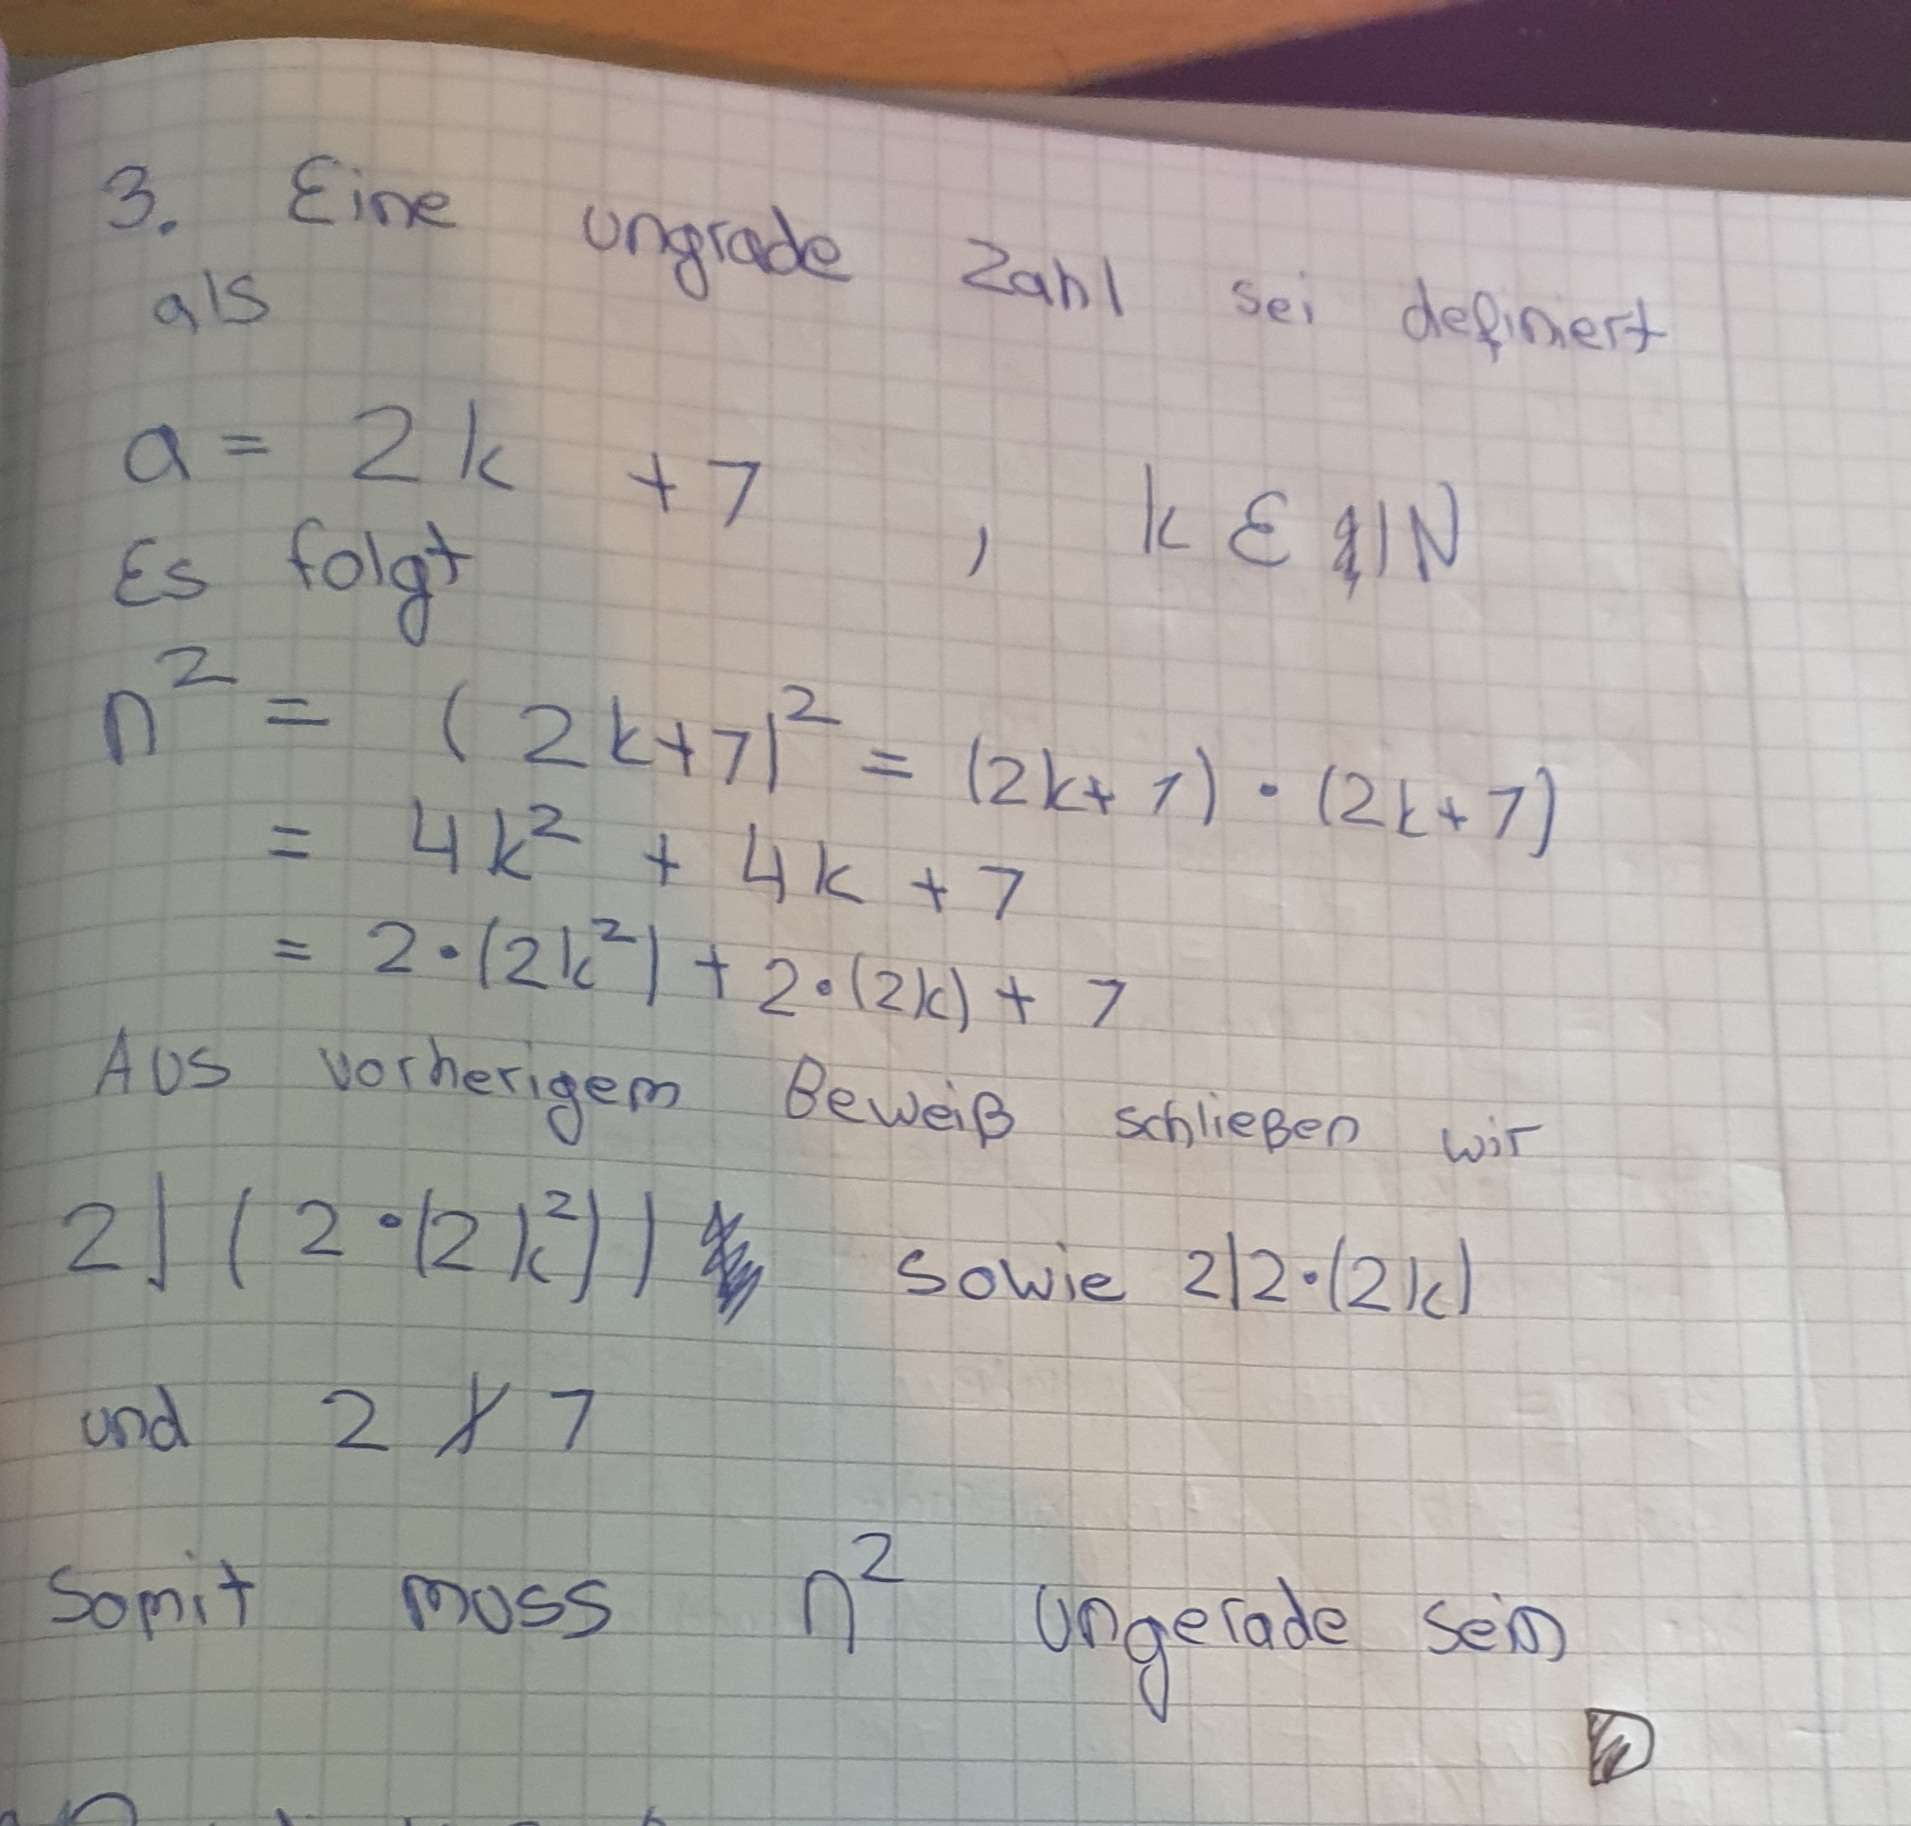 3. Eine ungrade Zahl sei definiert
als
a = 2k + 1 , k ∈ ℕ
Es folgt
n² = (2k+1)² = (2k+1) · (2k+1)
= 4k² + 4k + 1
= 2·(2k²) + 2·(2k) + 1
Aus vorherigem Beweiß schließen wir
2 | (2·(2k²)) sowie 2|2·(2k)
und 2 ∤ 1
Somit muss n² ungerade sein